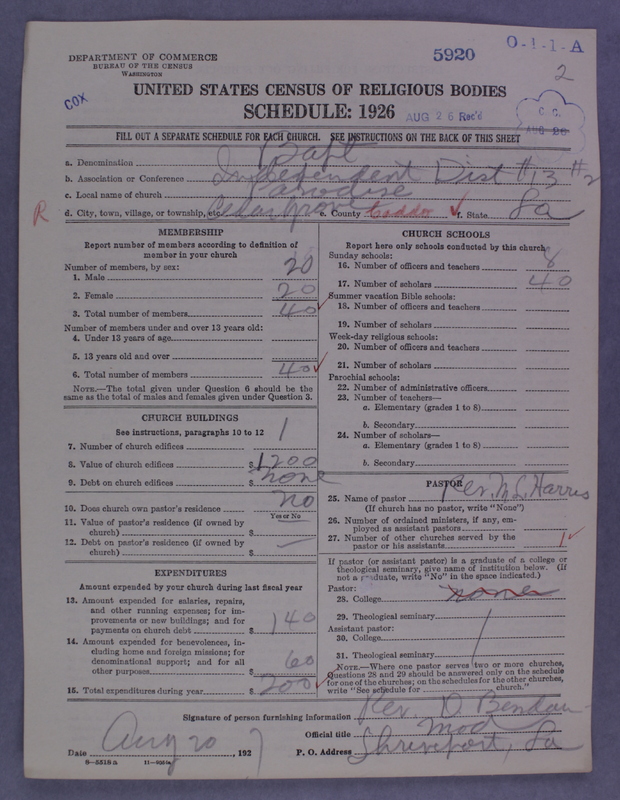 DEPARTMENT OF COMMERCE
BUREAU OF THE CENSUS
WASHINGTON
5920
O-1-1-A
2
COX
UNITED STATES CENSUS OF RELIGIOUS BODIES
SCHEDULE: 1926
AUG 26 Rec'd
C. C.
AUG 26
FILL OUT A SEPARATE SCHEDULE FOR EACH CHURCH. SEE INSTRUCTIONS ON THE BACK OF THIS SHEET
a. Denomination Bapt
b. Association or Conference Independent Dist #13 #2
c. Local name of church Paradise
R d. City, town, village, or township, etc. Cedar Grove e. County Caddo f. State La
MEMBERSHIP
Report number of members according to definition of
member in your church
Number of members, by sex:
1. Male 20
2. Female 20
3. Total number of members 40
Number of members under and over 13 years old:
4. Under 13 years of age
5. 13 years old and over
6. Total number of members 40
NOTE.—The total given under Question 6 should be the
same as the total of males and females given under Question 3.
CHURCH BUILDINGS
See instructions, paragraphs 10 to 12
7. Number of church edifices 1
8. Value of church edifices $1200
9. Debt on church edifices $ none
10. Does church own pastor's residence no
Yes or No
11. Value of pastor's residence (if owned by
church) $
12. Debt on pastor's residence (if owned by
church) $
EXPENDITURES
Amount expended by your church during last fiscal year
13. Amount expended for salaries, repairs,
and other running expenses; for im-
provements or new buildings; and for
payments on church debt $ 140
14. Amount expended for benevolences, in-
cluding home and foreign missions; for
denominational support; and for all
other purposes $ 60
15. Total expenditures during year $ 200
CHURCH SCHOOLS
Report here only schools conducted by this church
Sunday schools:
16. Number of officers and teachers 8
17. Number of scholars 40
Summer vacation Bible schools:
18. Number of officers and teachers
19. Number of scholars
Week-day religious schools:
20. Number of officers and teachers
21. Number of scholars
Parochial schools:
22. Number of administrative officers
23. Number of teachers—
a. Elementary (grades 1 to 8)
b. Secondary
24. Number of scholars—
a. Elementary (grades 1 to 8)
b. Secondary
PASTOR
25. Name of pastor Rev. M. L. Harris
(If church has no pastor, write "None")
26. Number of ordained ministers, if any, em-
ployed as assistant pastors
27. Number of other churches served by the
pastor or his assistants 1
If pastor (or assistant pastor) is a graduate of a college or
theological seminary, give name of institution below. (If
not a graduate, write "No" in the space indicated.)
Pastor:
28. College
29. Theological seminary
Assistant pastor:
30. College
31. Theological seminary
NOTE.—Where one pastor serves two or more churches,
Questions 28 and 29 should be answered only on the schedule
for one of the churches; on the schedules for the other churches,
write "See schedule for church."
Signature of person furnishing information Rev. D. Bendau
Official title Mod
Date Aug 20, 1927 P. O. Address Shreveport, La
8-5518a